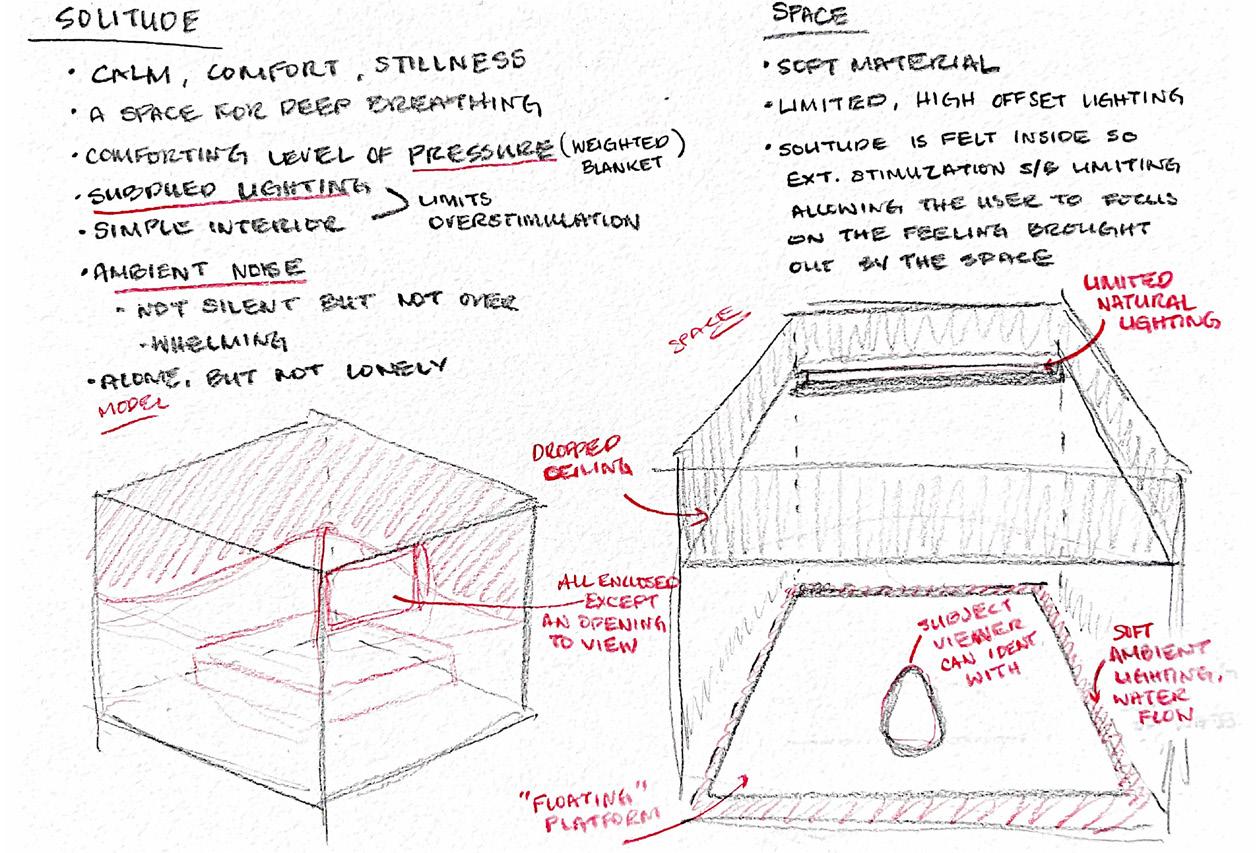 SOLITUDE
• CALM, COMFORT, STILLNESS
• A SPACE FOR DEEP BREATHING
• COMFORTING LEVEL OF PRESSURE (WEIGHTED
BLANKET)
• SUBDUED LIGHTING
• SIMPLE INTERIOR
LIMITS
OVERSTIMULATION
• AMBIENT NOISE
• NOT SILENT BUT NOT OVER
-WHELMING
• ALONE, BUT NOT LONELY
MODEL
ALL ENCLOSED
EXCEPT
AN OPENING
TO VIEW
SPACE
• SOFT MATERIAL
• LIMITED, HIGH OFFSET LIGHTING
• SOLITUDE IS FELT INSIDE SO
EXT. STIMULZATION S/B LIMITING
ALLOWING THE USER TO FOCUS
ON THE FEELING BROUGHT
OUT BY THE SPACE
SPACE
LIMITED
NATURAL
LIGHTING
DROPPED
CEILING
SUBJECT
VIEWER
CAN IDENT
WITH
SOFT
AMBIENT
LIGHTING,
WATER
FLOW
"FLOATING"
PLATFORM